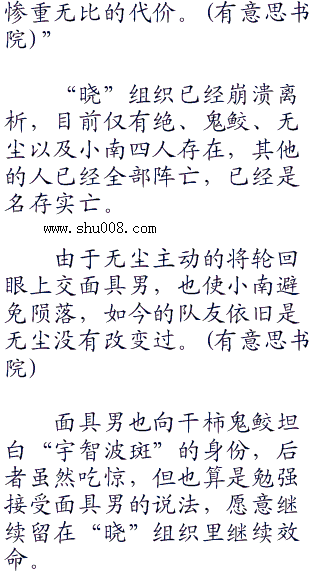 惨重无比的代价。(有意思书
院)”
“晓”组织已经崩溃离
析，目前仅有绝、鬼鲛、无
尘以及小南四人存在，其他
的人已经全部阵亡，已经是
名存实亡。
www.shu008.com
由于无尘主动的将轮回
眼上交面具男，也使小南避
免陨落，如今的队友依旧是
无尘没有改变过。(有意思书
院)
面具男也向干柿鬼鲛坦
白“宇智波斑”的身份，后
者虽然吃惊，但也算是勉强
接受面具男的说法，愿意继
续留在“晓”组织里继续效
命。